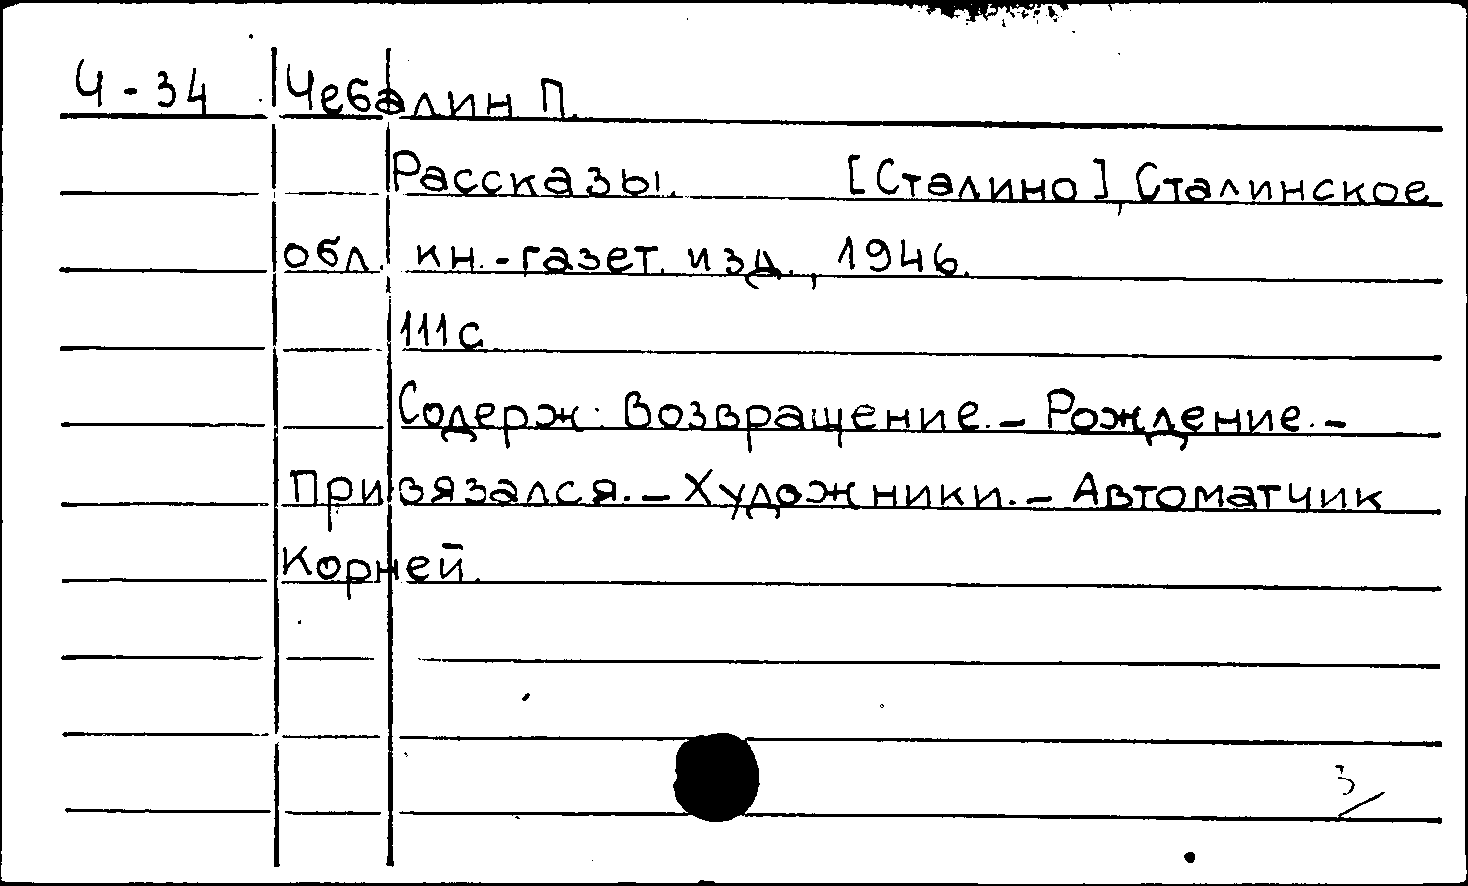 Ч-34 Чебалин П.
Рассказы. [Сталино], Сталинское
обл. кн.-газет. изд., 1946.
111с.
Содерж.: Возвращение.– Рождение.–
Привязался.– Художники.– Автоматчик
Корней.
3